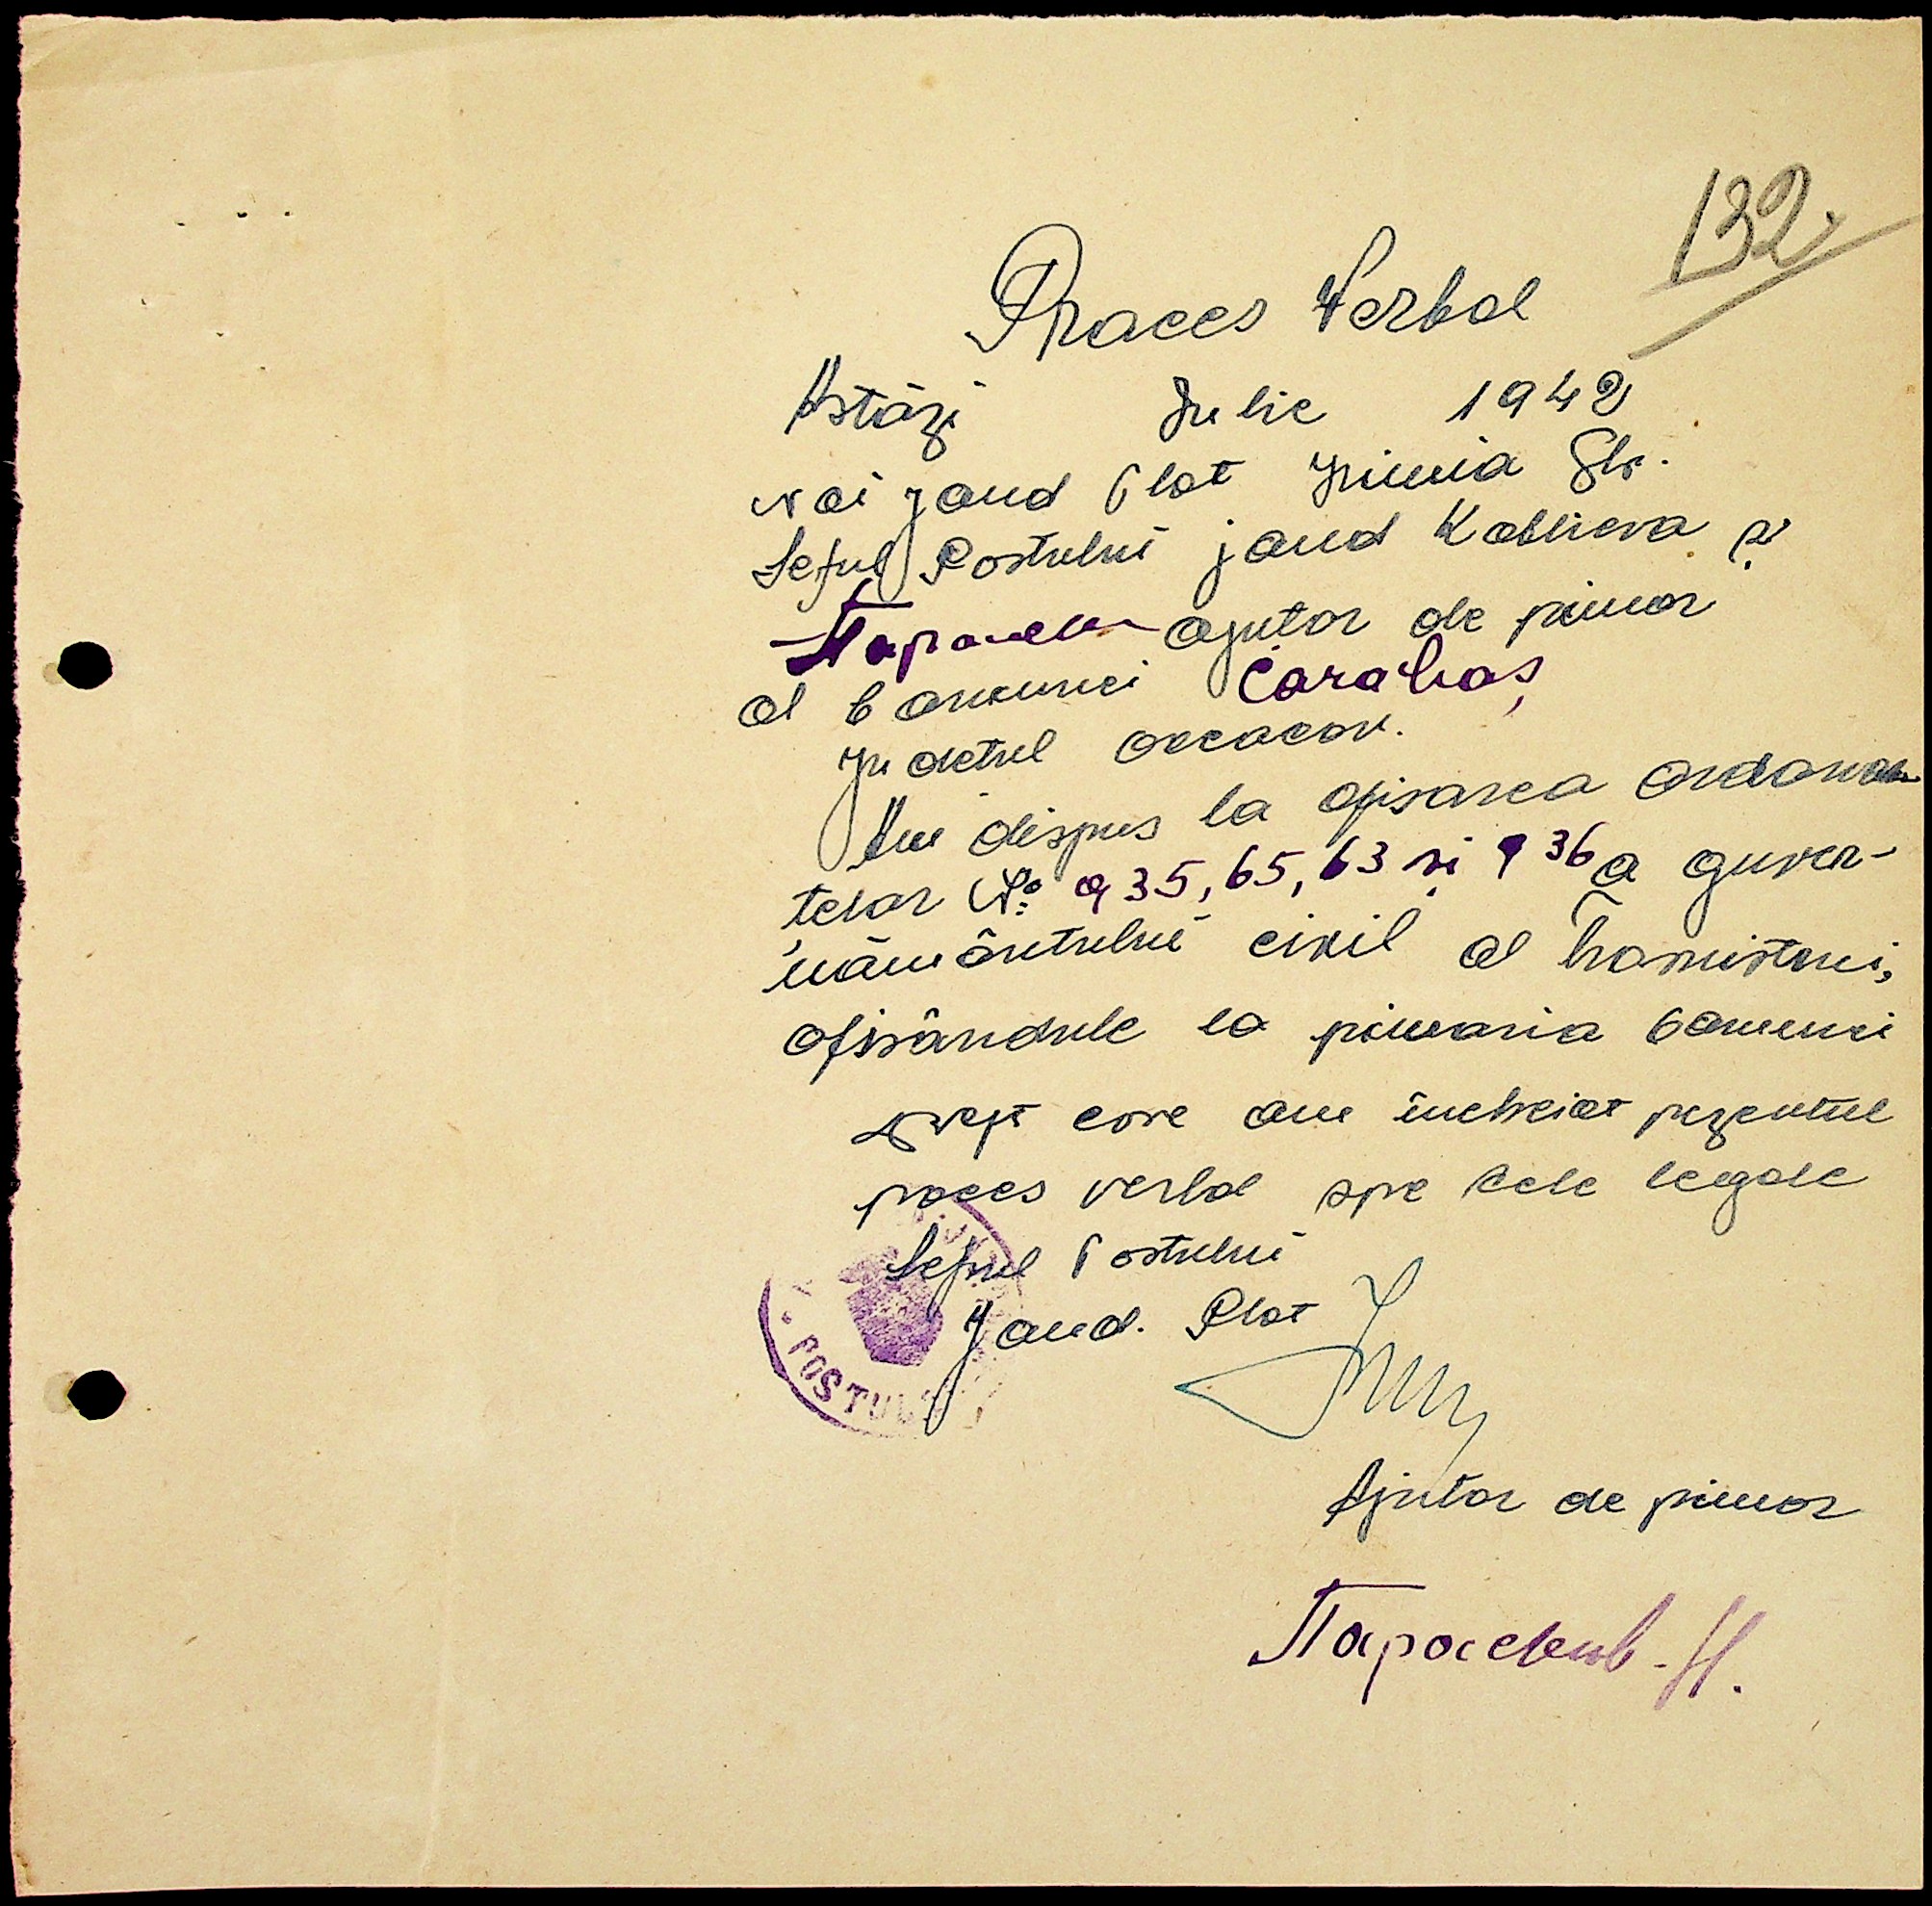 132
Proces Verbal
Astăzi Iulie 1942
noi jand Plot Irimia Gh.
Seful Postului jand Koblieva și
ajutor de primar
al comunei Carabaș
Judetul Oceacov.
Am dispus la afisarea ordonan
telor No 935, 65, 63 și 936 a guver-
nământului civil al Transnistriei,
afisândule la primaria comunei
drept care am încheiat prezentul
proces verbal spre cele legale
Seful Postului
Jand. Plot
POSTUL
Ajutor de primar
Параскив. Н.